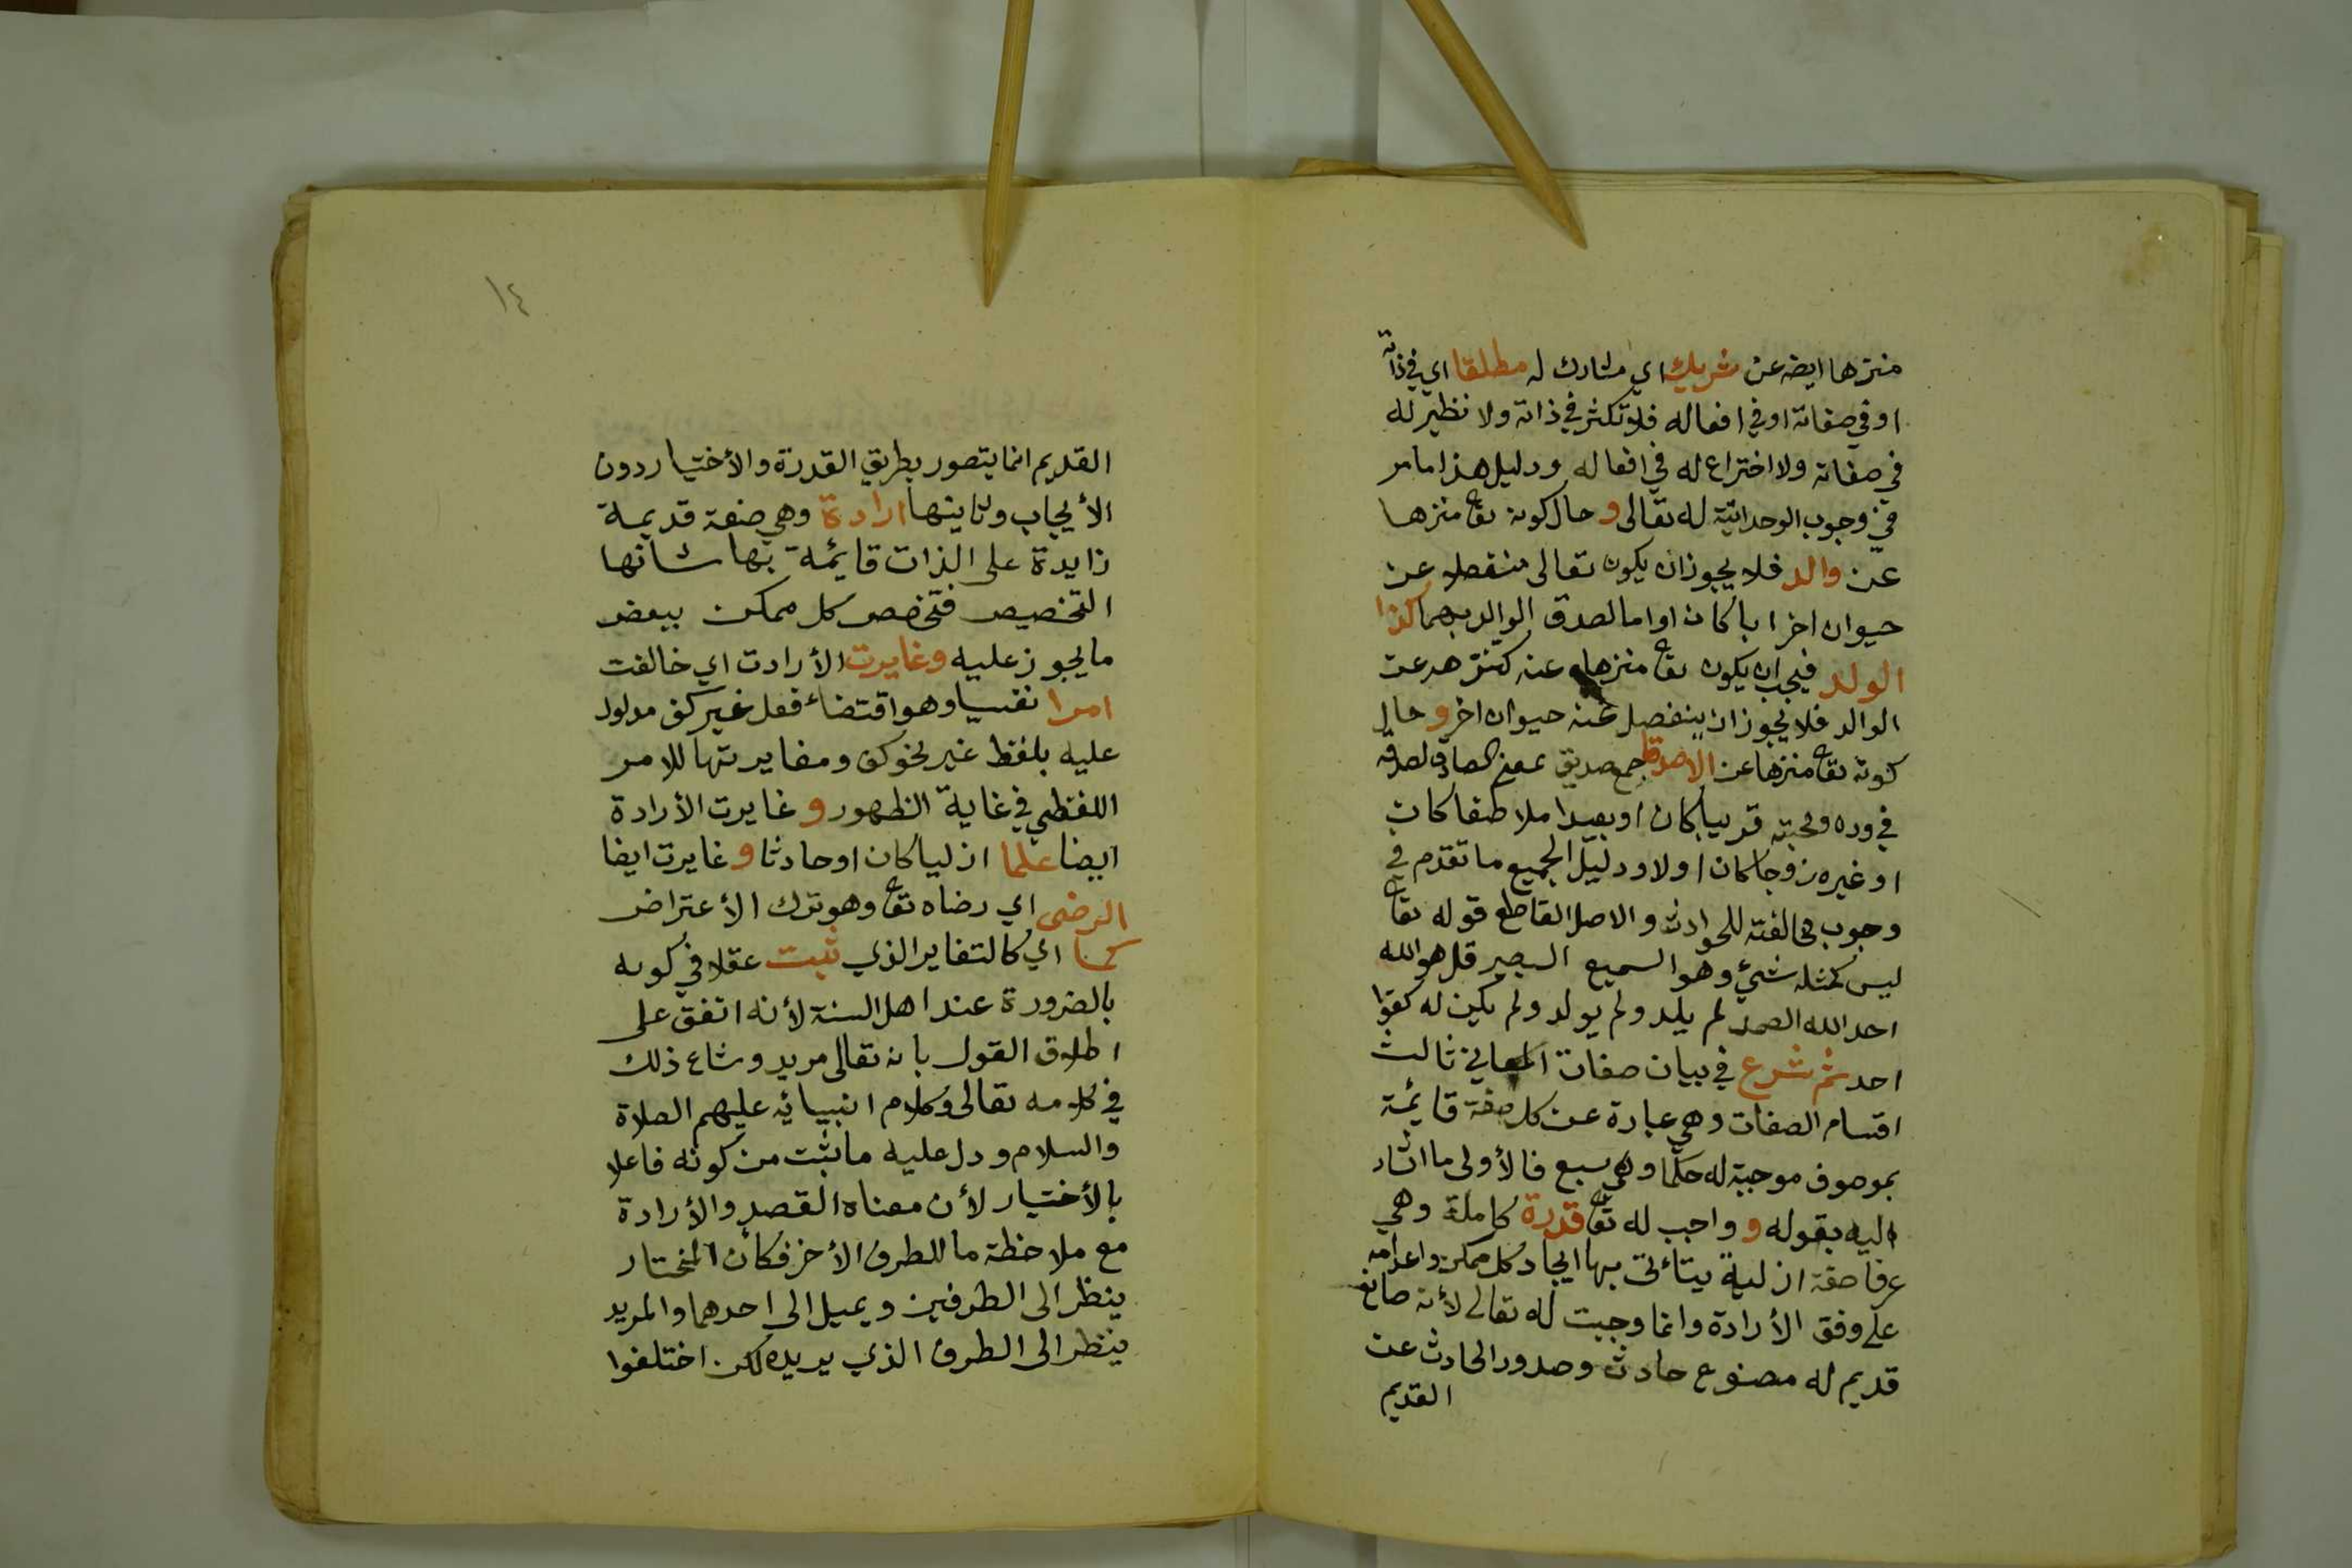 منزها ايضه عن شريك اي مشارك له مطلقا اي في ذاته
او في صفاته او في افعاله فلا تكثر في ذاته ولا نظير له
في صفاته ولا اختراع له في افعاله ودليل هذا مامر
في وجوب الوحدانية له تعالى و حال كونه تع منزها
عن والد فلا يجوز ان يكون تعالى منفصلا عن
حيوان اخر ابا كان او اما لصدق الوالد بهما كذا
الولد فيجب ان يكون تع منزها عنه كتنزهه عن
الوالد فلا يجوز ان ينفصل عنه حيوان اخر و حال
كونه تع منزها عن الاصدقا جمع صديق بمعنى الصادق لصدقه
في وده ومحبته قريبا كان او بعيدا ملاطفا كان
او غيره زوجا كان او لا ودليل الجميع ما تقدم في
وجوب مخالفته للحوادث والاصل القاطع قوله تع
ليس كمثله شيء وهو السميع البصير قل هو الله
احد الله الصمد لم يلد ولم يولد ولم يكن له كفوا
احد ثم شرع في بيان صفات المعاني ثالث
اقسام الصفات وهي عبارة عن كل صفة قائمة
بموصوف موجبة له حكما وهي سبع فالأولى ما اشار
اليه بقوله و واجب له تع قدرة كاملة وهي
عرفا صفة ازلية يتأتى بها ايجاد كل ممكن واعدامه
على وفق الأرادة وانما وجبت له تعالى لأنه صانع
قديم له مصنوع حادث وصدور الحادث عن
القديم
١٤
القديم انما يتصور بطريق القدرة والأختيار دون
الأيجاب وثانيتها ارادة وهي صفة قديمة
زايدة على الذات قايمة بها شانها
التخصيص فتخصص كل ممكن ببعض
ما يجوز عليه وغايرت الأرادت اي خالفت
امرا نفسيا وهو اقتضاء فعل غير كف مدلول
عليه بلفظ غير نحو كف ومغايرتها للامر
اللفظي في غاية الظهور و غايرت الأرادة
ايضا علما ازليا كان او حادثا و غايرت ايضا
الرضى اي رضاه تع وهو ترك الأعتراض
كما اي كالتغاير الذي ثبت عقلا في كونه
بالضرورة عند اهل السنة لأنه اتفق على
اطلاق القول بانه تعالى مريد وشاع ذلك
في كلامه تعالى وكلام انبيائه عليهم الصلاة
والسلام ودل عليه ما ثبت من كونه فاعلا
بالأختيار لأن معناه القصد والأرادة
مع ملاحظة ما للطرف الأخر فكأن المختار
ينظر الى الطرفين ويميل الى احدهما والمريد
ينظر الى الطرف الذي يريده لكن اختلفوا